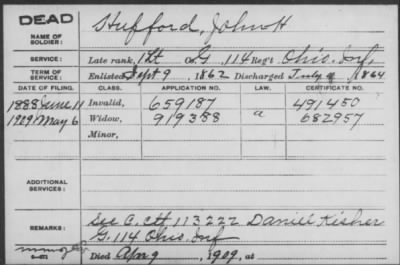 DEAD
NAME OF SOLDIER: Hufford, John H
SERVICE: Late rank, Co. G, 114 Reg't Ohio Inf.
TERM OF SERVICE: Enlisted Sept 9, 1862 Discharged July 1864
DATE OF FILING. CLASS. APPLICATION NO. LAW. CERTIFICATE NO.
1888 June 11 Invalid, 659187 491450
1909 May 6 Widow, 919388 a 682957
Minor,
ADDITIONAL SERVICES:
REMARKS: See C. Ctf 113222 Daniel Kisher
G. 114 Ohio Inf
Died Apr 9, 1909, at